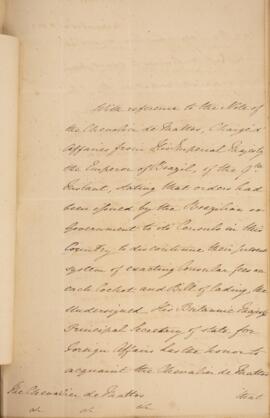 With reference to the Note of
the Chevalier de Mattos, Chargé d'
Affaires from His Imperial Majesty
the Emperor of Brazil, of the 9th
Instant, stating that orders had
been issued by the Brazilian
Government to its Consuls in this
Country to discontinue their present
system of exacting Consular fees on
each Cocket and Bill of Lading, the
Undersigned His Britannic Majesty's
Principal Secretary of State for
Foreign Affairs has the honor to
acquaint the Chevalier de Mattos
The Chevalier de Mattos that